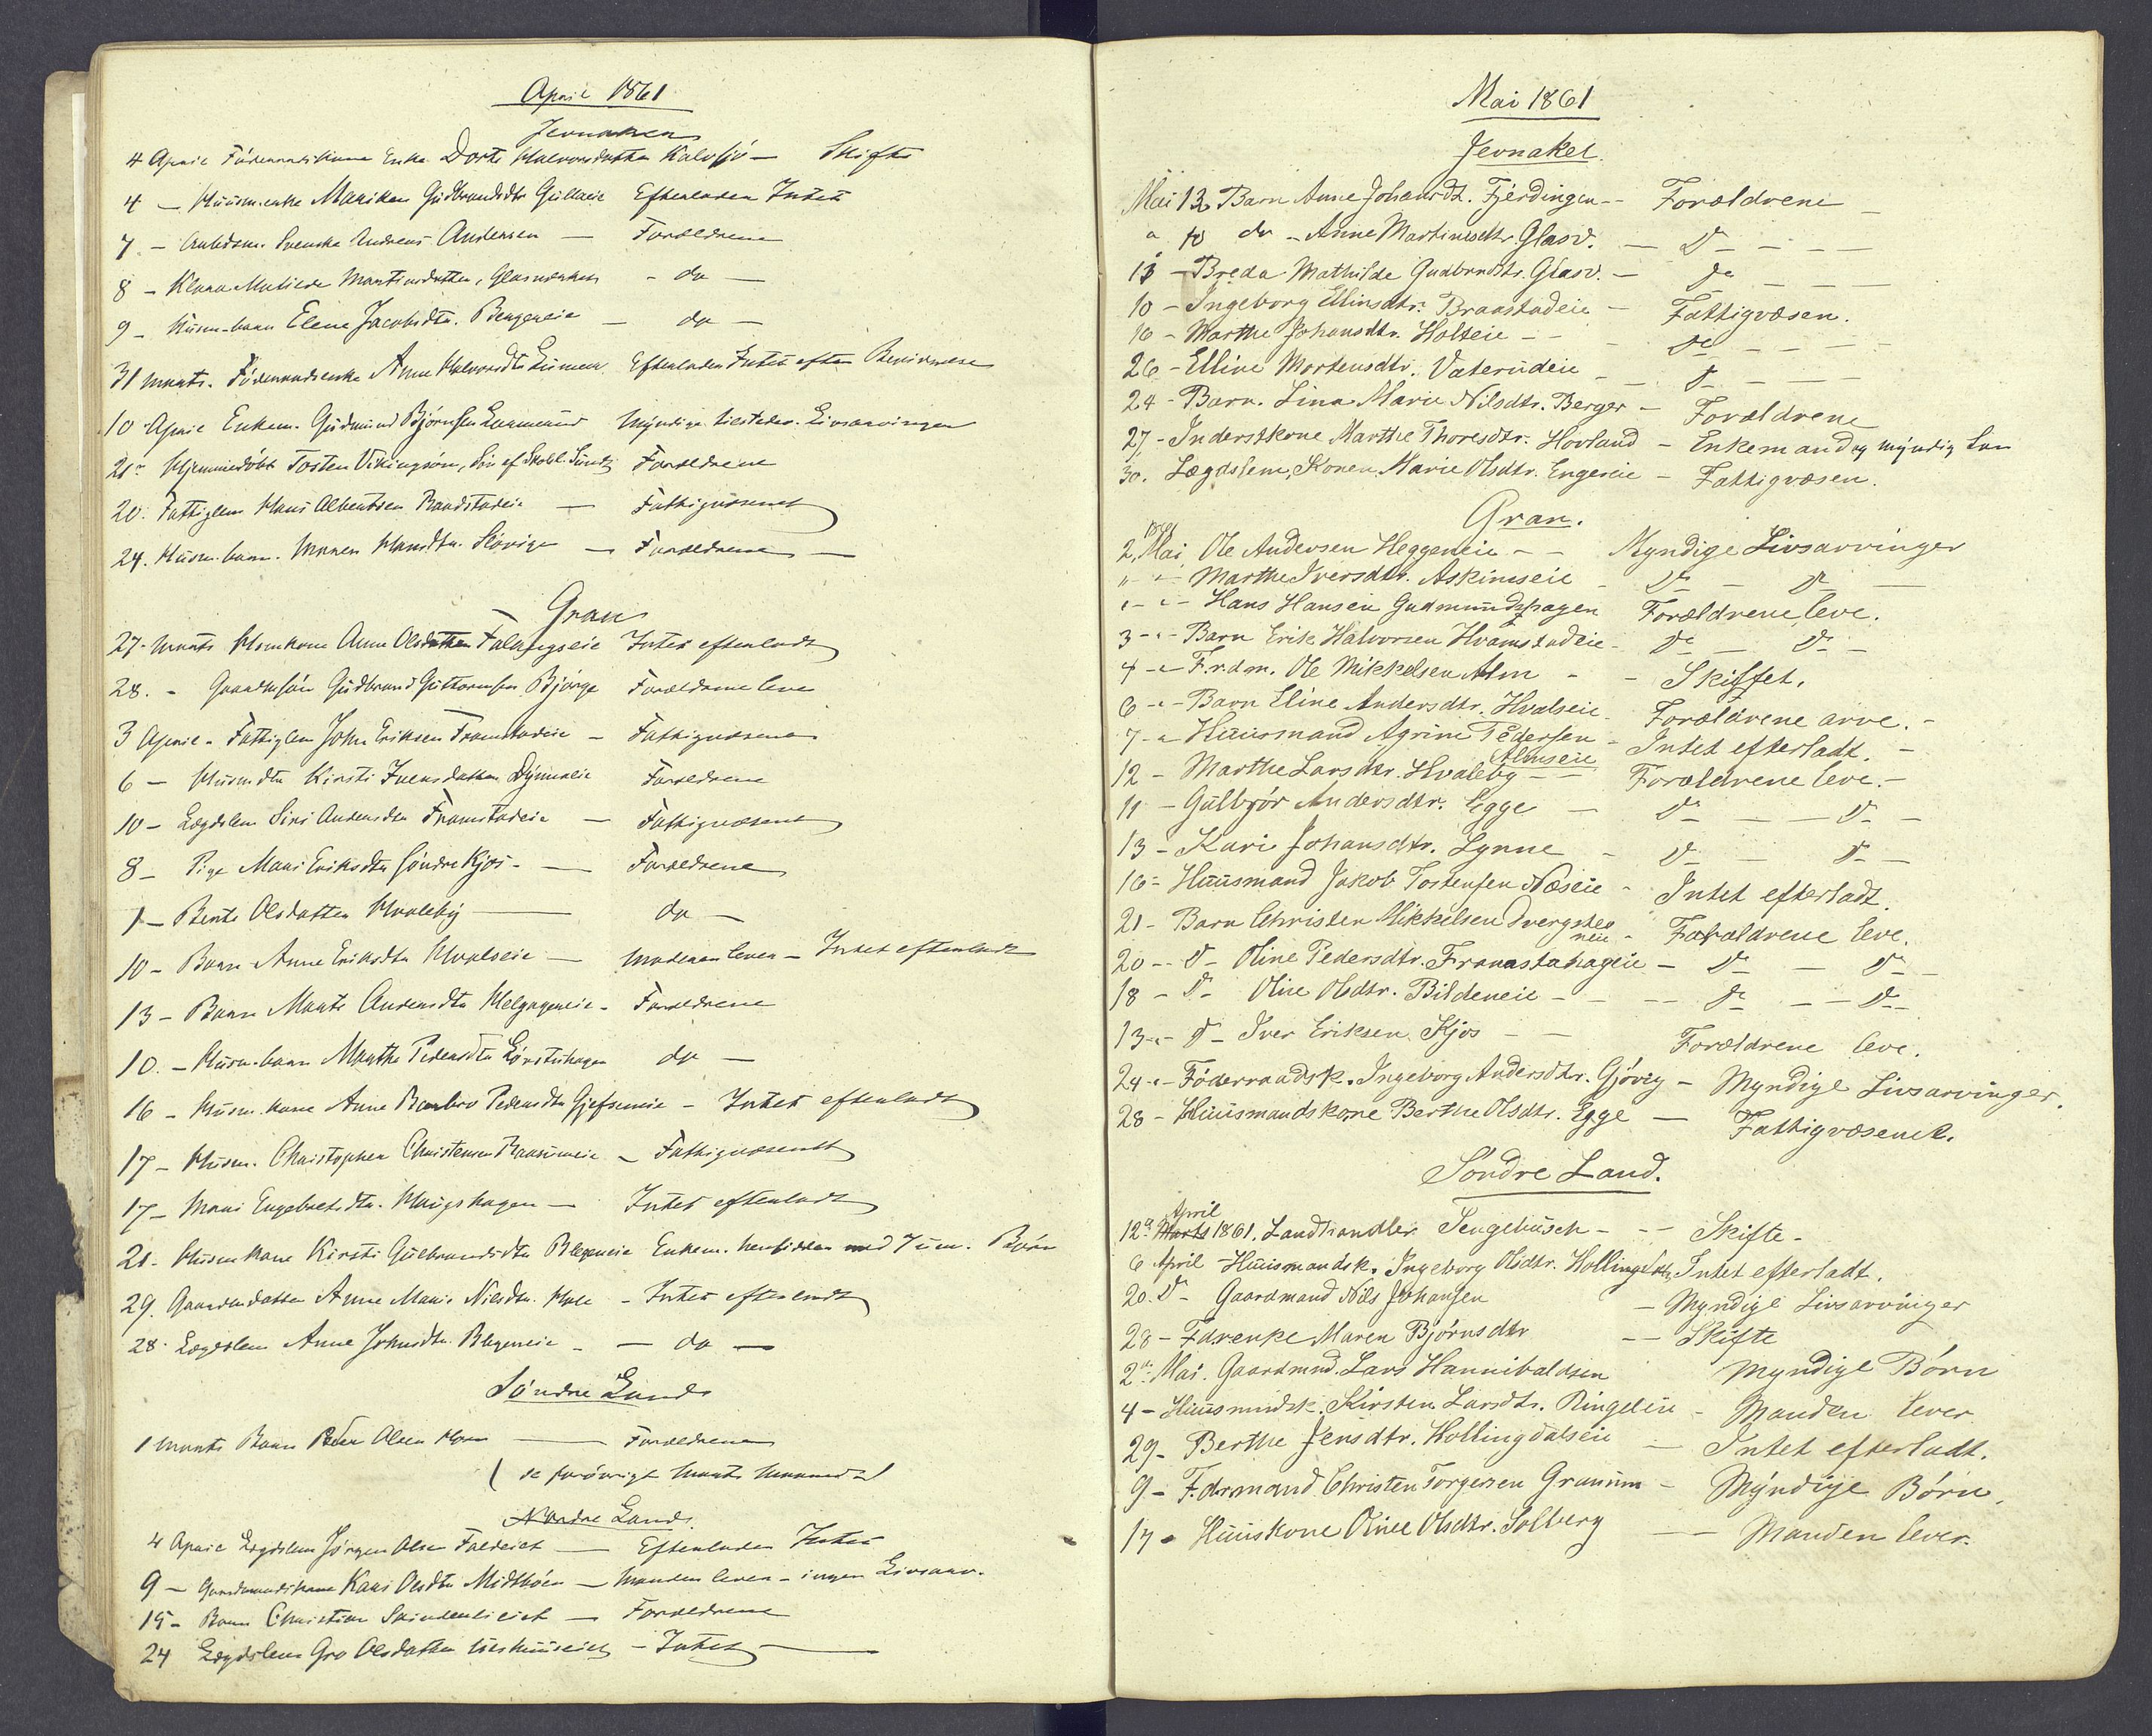 April 1861
Jevnaker
4 April Föderaadskone Enke Dorte Halvorsdatter Kalvsjö — Skifte
4 — Huusm.enke Mariken Gudbrandsdtr Gullaeie Efterlader Intet
7 — Andreas Andersen — Forældrene
8 — Klara Matilde Martinsdatter, Glasværket - do —
9 — Husm.barn Eline Jacobsdtr. Bergereie — do —
31 Marts. Föderaadsenke Anne Halvorsdtr Efterlader Intet efter Beviisnelse
10 April Enkem. Gudmund Björnsen Myndige tilstede. Livsarvinger
21 Hjemmedöbt Tosten Vikingsön, Sön af Forældrene
20. Fattiglem Hans Albertsen Raadstadeie — Fattigvæsenet
24. Husm.barn. Maren Hansdtr. Slövigen — Forældrene —
Gran
27. Marts Hsmkone Anne Olsdatter Falangseie Intet efterladt
28. - Gaardmsön Gudbrand Guttormsen Bjørge Forældrene leve
3 April - Fattiglem John Eriksen Framstadeie — Fattigvæsenet
6 — Husmdtr Kirsti Iversdatter Dynneeie Forældrene
10 — Lægdslem Siri Andersdtr Framstadeie — Fattigvæsenet
8 — Pige Mari Eriksdtr söndre Kjos — Forældrene
1 — Berte Olsdatter Hvaleby — do —
10 — Barn Anne Eriksdtr Hvalseie — Moderen lever — Intet efterladt
13 — Barn Marte Andersdtr Helgagereie — Forældrene
10. — Husm.barn Marthe Pedersdtr do —
16 — Husm.kone Anne Barbro Pedersdtr — Intet efterladt
17 — Husm. Christopher Christensen — Fattigvæsenet
17 — Mari Engebretsdtr. Haugshagen — Intet efterladt
21. Husmkone Kirsti Gulbrandsdtr Blegeneie Enkem. hensidder med 7 um. Børn
29. Gaardmdatter Anne Marie Nielsdtr. Hole — Intet efterladt
28. Lægdslem Anne Johnsdtr. Blegeneie — do —
Söndre Land
1 Marts Barn Peder Olsen Horn — Forældrene
( se forövrigt Marts Maaned )
Nordre Land.
4 April Lægdslem Jörgen Olsen — Efterlader Intet
9 — Gaardmandskone Kari Olsdtr Midtböen — Manden lever — ingen Livsarv.
15 — Barn Christian — Forældrene
24 Lægdslem Gro Olsdatter — Intet —
Mai 1861
Jevnaker.
Mai 12 Barn Anne Johansdt. Fjerdingen -- Forældrene —
" 10 do - Anne Martinsdtr. Glasv. — Do — —
13 — Breda Mathilde Gudbrndsdtr. Glasv. — Do — —
10 — Ingeborg Ellinsdtr. Braastadeie — Fattigvæsen.
16 — Marthe Johansdtr. Holteie — — Do — —
26 — Elline Mortensdtr. Vaterudeie — Do — —
24 — Barn. Lina Marie Nilsdtr. Berger — Forældrene
27 — Inderstkone Marthe Thoresdtr. Hovland — Enkemand og myndig Søn
30. Lægdslem, Konen Marie Olsdtr. Engereie — Fattigvæsen.
Gran.
2 Mai 1861, Ole Andersen Heggeneie — — Myndige Livsarvinger
" " — Marthe Iversdtr. Askimseie — Do — Do —
" " — Hans Hansen Gudmundshagen Forældrene leve.
3 — " — Barn Erik Halvorsen Hvamstadeie — Do — Do —
4 — " — F.rdm. Ole Mikkelsen Alm — — Skiftet.
6 — " — Barn Eline Andersdtr. Hvalseie — Forældrene arve. —
7 — " Huusmand Agrim Pedersen Almseie — Intet efterladt. —
12 — Marthe Larsdtr. Hvaleby — — Forældrene leve. —
11 — Gulbjør Andersdtr. Egge — Do — — Do —
13 — Kari Johansdtr. Lynne — Do — Do —
16 — Huusmand Jakob Tostensen Næseie — Intet efterladt.
21 — Barn Christen Mikkelsen Dvergsteneie — Forældrene leve.
20 — Do — Oline Pedersdtr. Framstahageie — Do — Do —
18 — Do — Oline Olsdtr. Bildeneie — — Do — — Do —
13 — " — Do — Iver Eriksen Kjos — — Forældrene leve.
24 — " — Föderraadsk. Ingeborg Andersdtr. Gjövig — Myndige Livsarvinger.
28 — Huusmandskone Berthe Olsdtr. Egge — Fattigvæsenet.
Söndre Land.
12te Marts April 1861. Landhandler Tengebusch — — Skifte —
6 April — Huusmandsk. Ingeborg Olsdtr. Intet efterladt.
20. Do — Gaardmand Nils Johansen — Myndige Livsarvinger
28 — Fdrenke Maren Björnsdtr — — Skifte
2. Mai. Gaardmnd. Lars Hannibaldsen Myndige Børn
4 — Huusmndsk. Kirsten Larsdtr. Ringelieie — Manden lever
29 — Berthe Jensdtr. Hollingdalseie — Intet efterladt.
9 — F.drmand Christen Torgersen Granum — Myndige Børn.
17 — Huuskone Olinee Olsdtr. Solberg — — Manden lever.